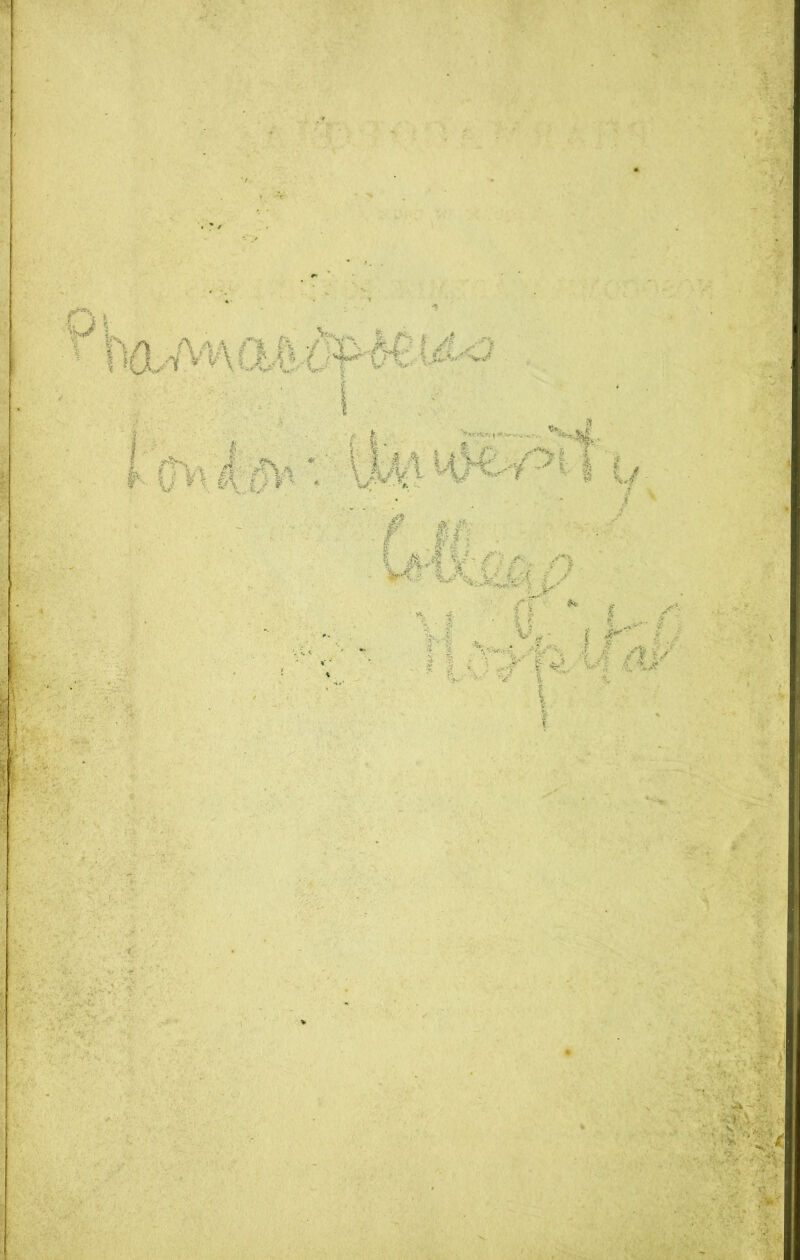 Pharmacopoeias
London: University
College
Hospital